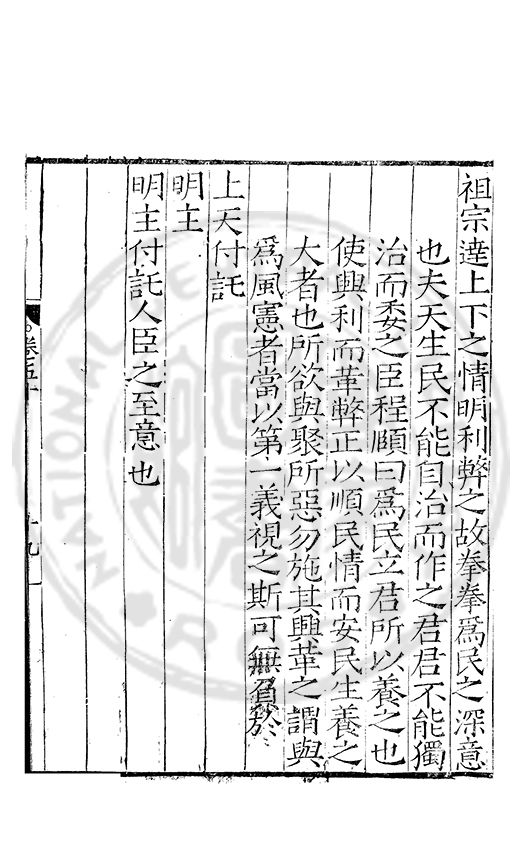 祖宗達上下之情明利弊之故拳拳爲民之深意
也夫天生民不能自治而作之君君不能獨
治而委之臣程頤曰爲民立君所以養之也
使興利而革弊正以順民情而安民生養之
大者也所欲與聚所惡勿施其興革之謂與
爲風憲者當以第一義視之斯可無負於
上天付託
明主
明主付託人臣之至意也
卷五十
十九
NATIONAL